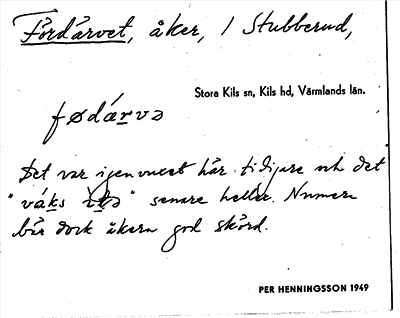 Fördärvet, åker, / Stubberud,
Stora Kils sn, Kils hd, Värmlands län.
fødárvə
Det var igenvuxet här tidigare och det
"våks ìtə" senare heller. Numera
bär dock åkern god skörd.
PER HENNINGSSON 1949